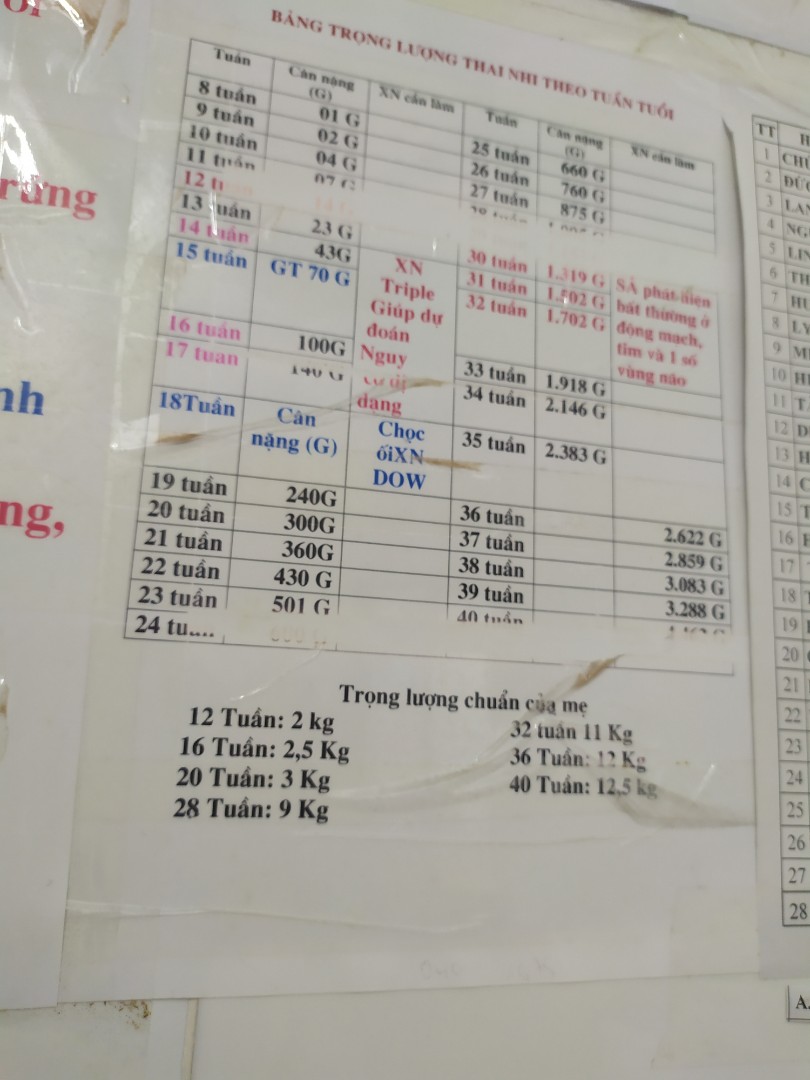 BẢNG TRỌNG LƯỢNG THAI NHI THEO TUẦN TUỔI
Tuần Cân nặng (G) XN cần làm Tuần Cân nặng (G) XN cần làm
8 tuần 01 G 25 tuần 660 G
9 tuần 02 G 26 tuần 760 G
10 tuần 04 G 27 tuần 875 G
11 tuần
13 tuần 23 G
14 tuần 43G 30 tuần 1.319 G
15 tuần GT 70 G 31 tuần 1.502 G
XN Triple Giúp dự đoán Nguy cơ dị dạng
32 tuần 1.702 G
SÂ phát hiện bất thường ở động mạch, tim và 1 số vùng não
16 tuần 100G 33 tuần 1.918 G
17 tuan 34 tuần 2.146 G
18Tuần Cân nặng (G) Chọc ốiXN DOW 35 tuần 2.383 G
19 tuần 240G 36 tuần 2.622 G
20 tuần 300G 37 tuần 2.859 G
21 tuần 360G 38 tuần 3.083 G
22 tuần 430 G 39 tuần 3.288 G
23 tuần 501 G 40 tuần
24 tu....
Trọng lượng chuẩn của mẹ
12 Tuần: 2 kg 32 tuần 11 Kg
16 Tuần: 2,5 Kg 36 Tuần: 12 Kg
20 Tuần: 3 Kg 40 Tuần: 12,5 kg
28 Tuần: 9 Kg
TT
1
2
3
4
5
6
7
8
9
10
11
12
13
14
15
16
17
18
19
20
21
22
23
24
25
26
27
28